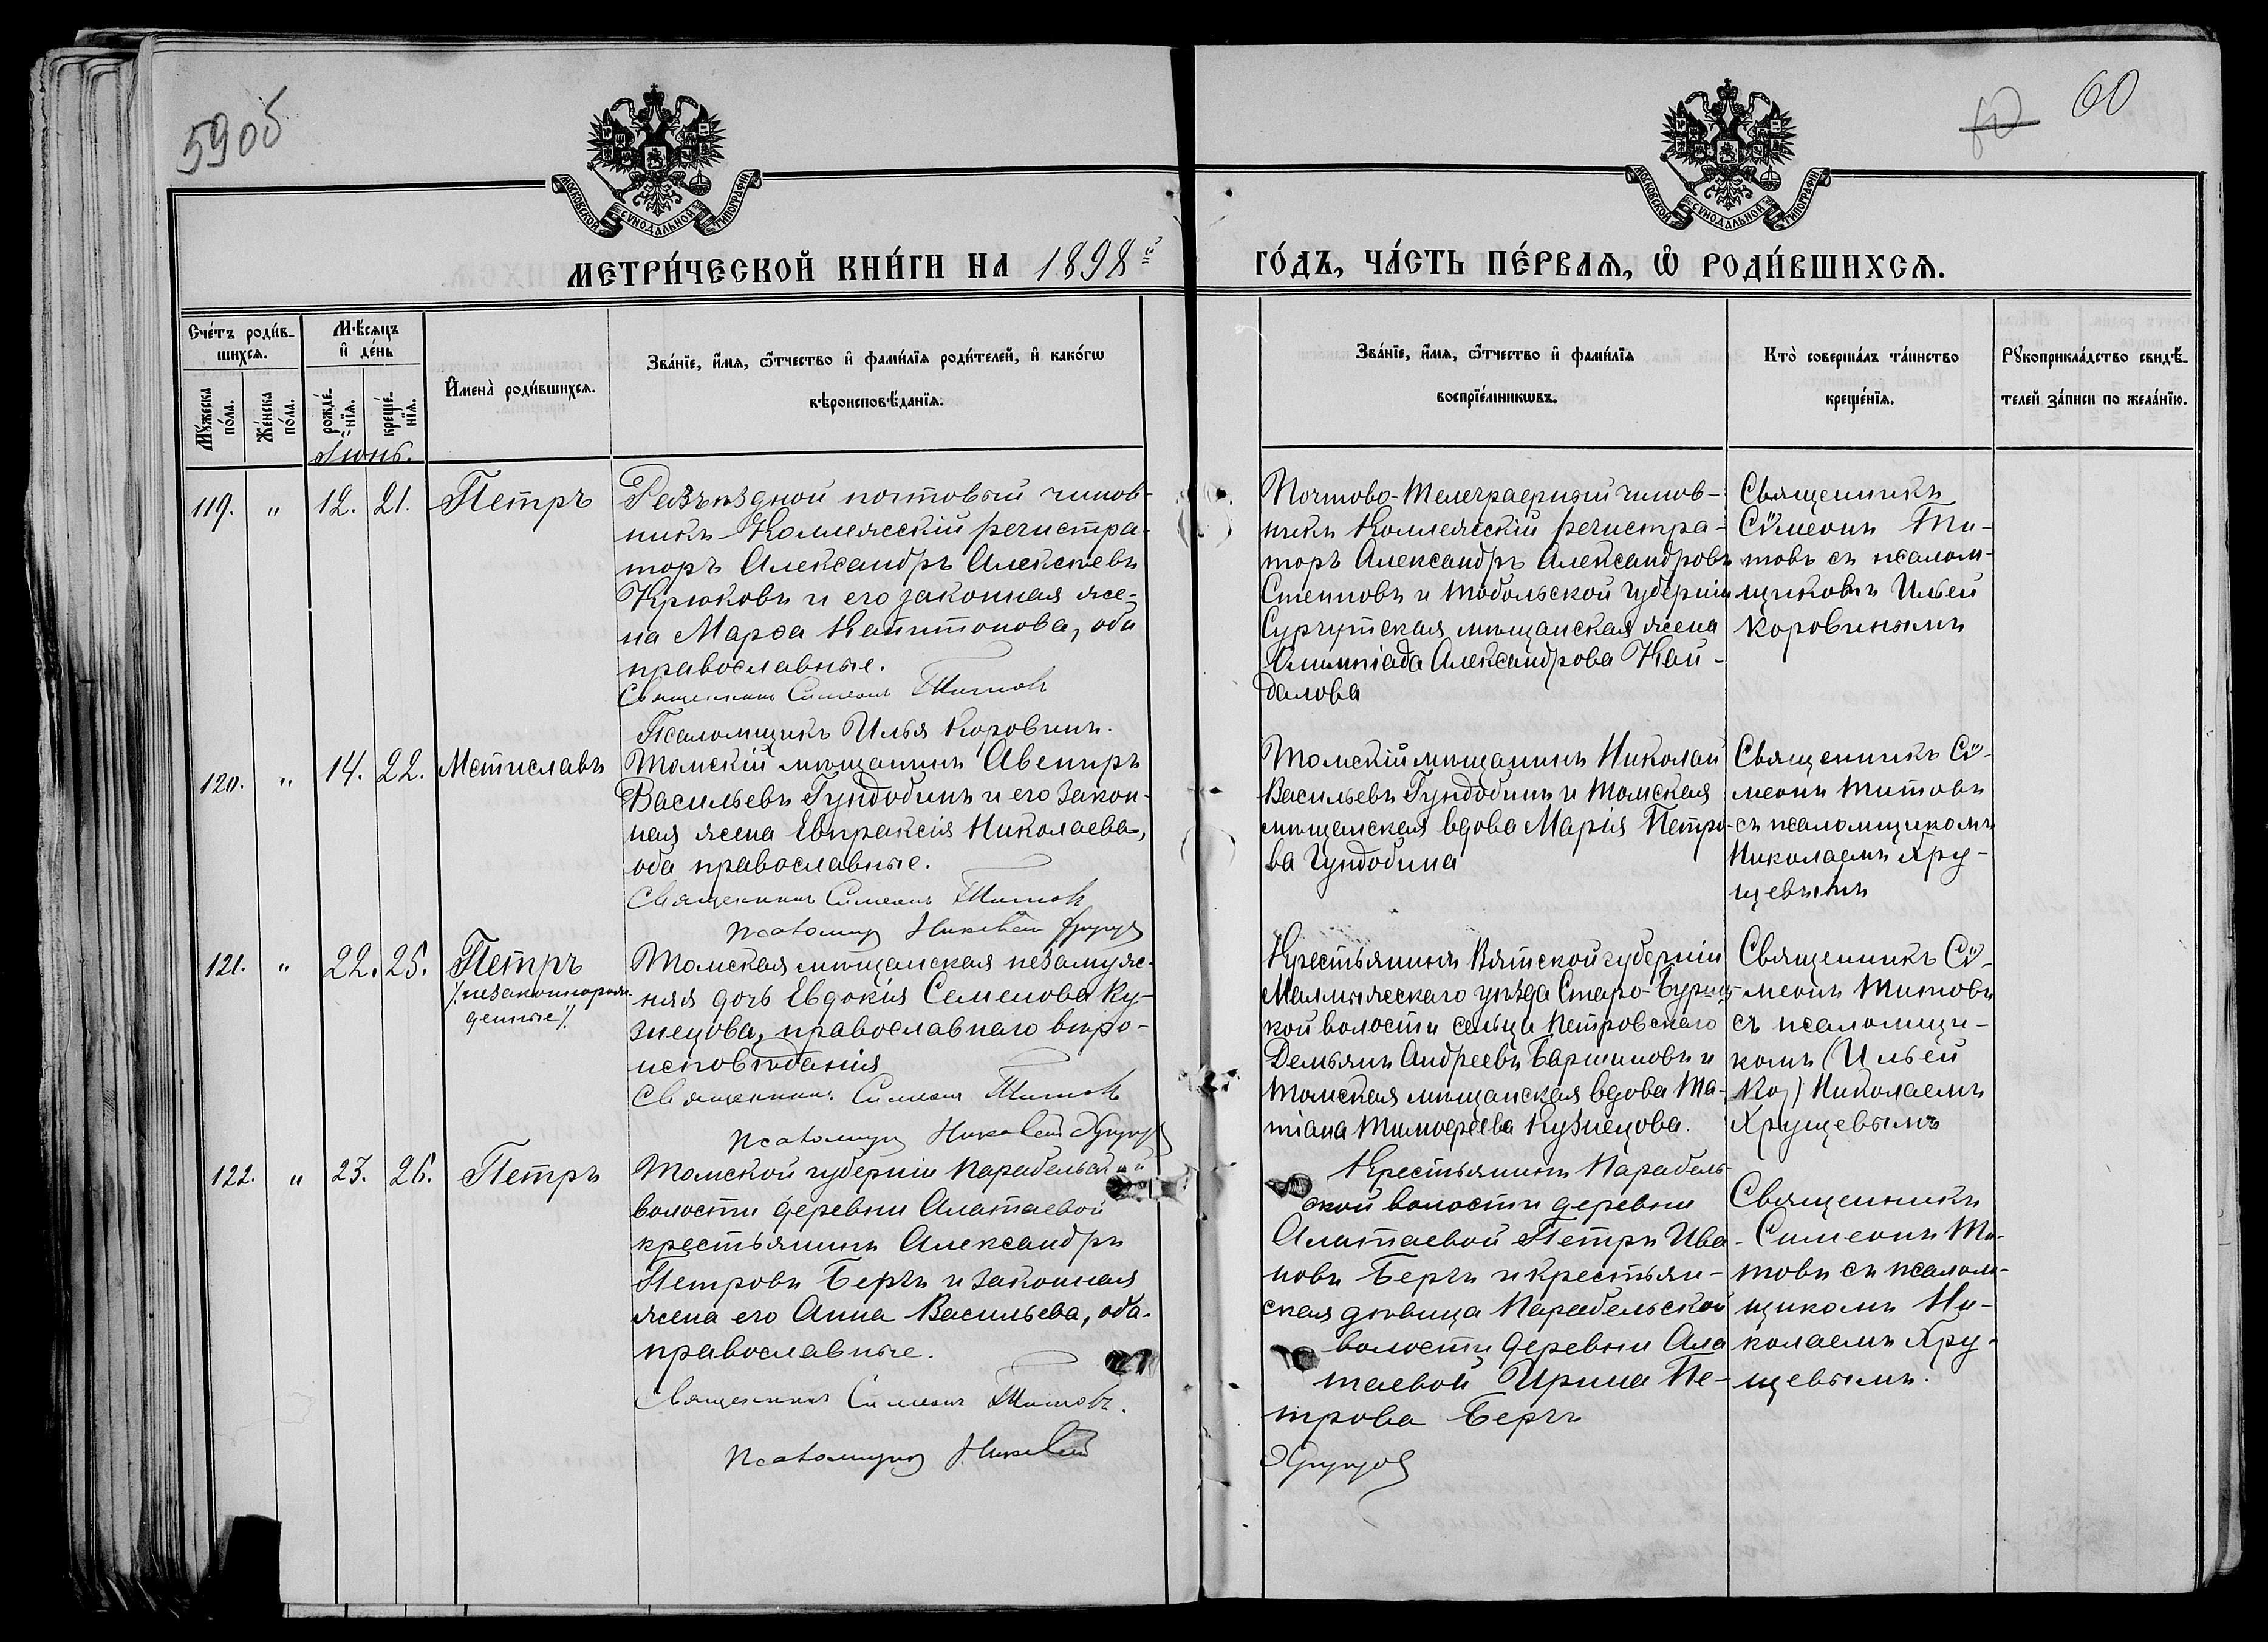 590б
60
60
МОСКОВСКОЙ СУНОДАЛЬНОЙ ТИПОГРАФІИ
МОСКОВСКОЙ СУНОДАЛЬНОЙ ТИПОГРАФІИ
МЕТРИ́ЧЕСКОЙ КНИ́ГИ НА 1898й
ГО́ДЪ, ЧА́СТЬ ПЕ́РВАѦ, Ѡ҆ РОДИ́ВШИХСѦ.
Сче́тъ роди́в-
шихсѧ.
Мꙋ́жеска
по́ла.
Же́нска
по́ла.
Мѣ́сѧцъ
и҆ де́нь
рожде́-
нїѧ.
креще́-
нїѧ.
И҆мена̀ роди́вшихсѧ.
Зва́нїе, и҆́мѧ, ѻ҆́тчество и҆ фами́лїѧ роди́телей, и҆ како́гѡ
вѣроисповѣ́данїѧ.
Зва́нїе, и҆́мѧ, ѻ҆́тчество и҆ фами́лїѧ
воспрїе́мникѡвъ.
Кто̀ соверша́лъ та́инство
креще́нїѧ.
Рꙋкоприкла́дство свидѣ́-
телей за́писи по жела́нїю.
Іюнь.
119. " 12. 21. Петръ
Разъѣздной почтовый чинов-
никъ Коллежскій регистра-
торъ Александръ Алексѣевъ
Крюковъ и его законная же-
на Марѳа Капитонова, оба
православные.
Священникъ Симеонъ Титовъ
Псаломщикъ Илья Коровинъ.
Почтово-Телеграфный чинов-
никъ Коллежскій регистра-
торъ Александръ Александровъ
Степновъ и Тобольской губерніи
Сургутская мѣщанская жена
Олимпіада Александрова Кай-
далова
Священникъ
Сѷмеонъ Ти-
товъ съ псалом-
щикомъ Ильей
Коровинымъ
120. " 14. 22. Мстиславъ
Томскій мѣщанинъ Авениръ
Васильевъ Гундобинъ и его закон-
ная жена Евпраксія Николаева,
оба православные.
Священникъ Симеонъ Титовъ
Псаломщ Николай Хрущов
Томскій мѣщанинъ Николай
Васильевъ Гундобинъ и Томская
мѣщанская вдова Марія Петро-
ва Гундобина
Священникъ Сѷ-
меонъ Титовъ
съ псаломщикомъ
Николаемъ Хру-
щевымъ
121. " 22. 25. Петръ
/:незаконнорож-
денные/.
Томская мѣщанская незамуж-
няя дочь Евдокія Семенова Ку-
знецова, православнаго вѣро-
исповѣданія
Священникъ Симеонъ Титовъ
Псаломщикъ Николай Хрущов
Крестьянинъ Вятской губерніи
Малмыжскаго уѣзда Старо-Бурец-
кой волости сельца Петровскаго
Демьянъ Андреевъ Баршиновъ и
Томская мѣщанская вдова Та-
тіана Тимоѳеева Кузнецова.
Священникъ Сѷ-
меонъ Титовъ
съ псаломщи-
комъ (Ильей
Ко) Николаемъ
Хрущевымъ
122. " 23. 26. Петръ
Томской губерніи Парабельской
волости деревни Алатаевой
крестьянинъ Александръ
Петровъ Бергъ и законная
жена его Анна Васильева, оба
православные.
Священникъ Симеонъ Титовъ.
Псаломщикъ Николай
Крестьянинъ Парабель-
ской волости деревни
Алатаевой Петръ Ива-
новъ Бергъ и крестьян-
ская дѣвица Парабельской
волости деревни Ала-
таевой Ирина Пе-
трова Бергъ
Хрущов
Священникъ
Симеонъ Ти-
товъ съ псалом-
щикомъ Ни-
колаемъ Хру-
щевымъ.